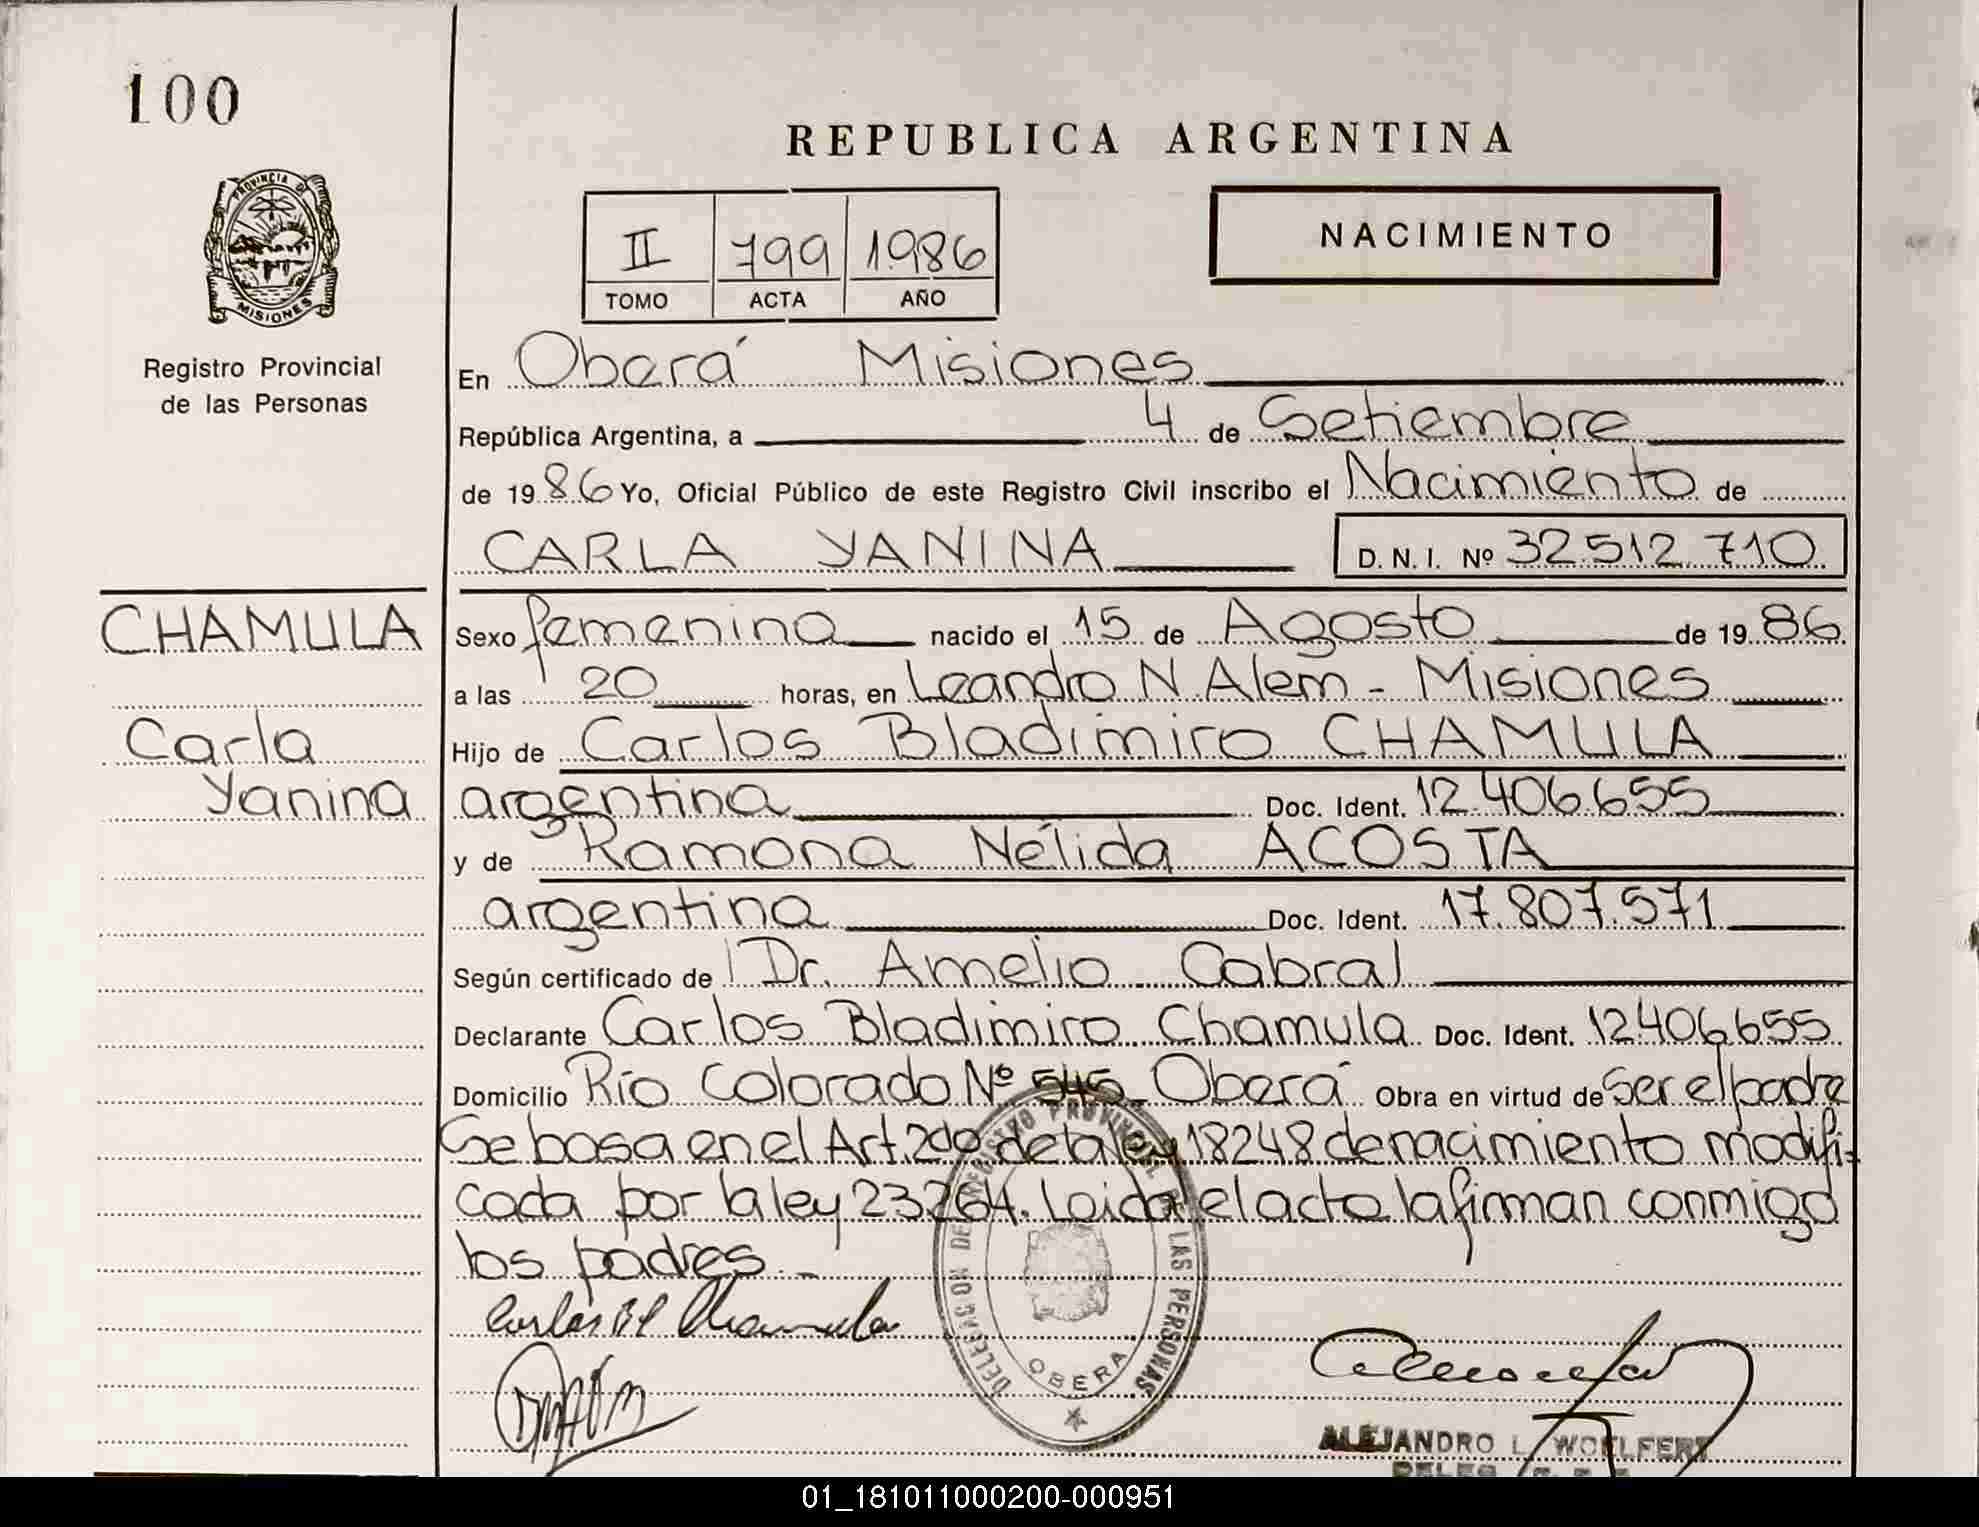 100
PROVINCIA D
MISIONES
Registro Provincial
de las Personas
CHAMULA
Carla
Yanina
REPUBLICA ARGENTINA
II 799 1986
TOMO ACTA AÑO
NACIMIENTO
En Oberá Misiones
República Argentina, a 4 de Setiembre
de 1986 Yo, Oficial Público de este Registro Civil inscribo el Nacimiento de
CARLA YANINA D. N. I. Nº 32.512.710
Sexo femenino nacido el 15 de Agosto de 1986
a las 20 horas, en Leandro N Alem - Misiones
Hijo de Carlos Bladimiro CHAMULA
argentina Doc. Ident. 12.406.655
y de Ramona Nélida ACOSTA
argentina Doc. Ident. 17.807.571
Según certificado de Dr. Amelio Cabral
Declarante Carlos Bladimiro Chamula Doc. Ident. 12.406.655
Domicilio Río Colorado Nº 545 Oberá Obra en virtud de ser el padre
Se basa en el Art. 2do de la ley 18248 de nacimiento modifi-
cada por la ley 23264. Leida el acta la firman conmigo
los padres -
Carlos Bl Chamula
DELEGACION DE REGISTRO PROVINCIAL LAS PERSONAS
OBERA
ALEJANDRO L. WOELFERT
01_181011000200-000951